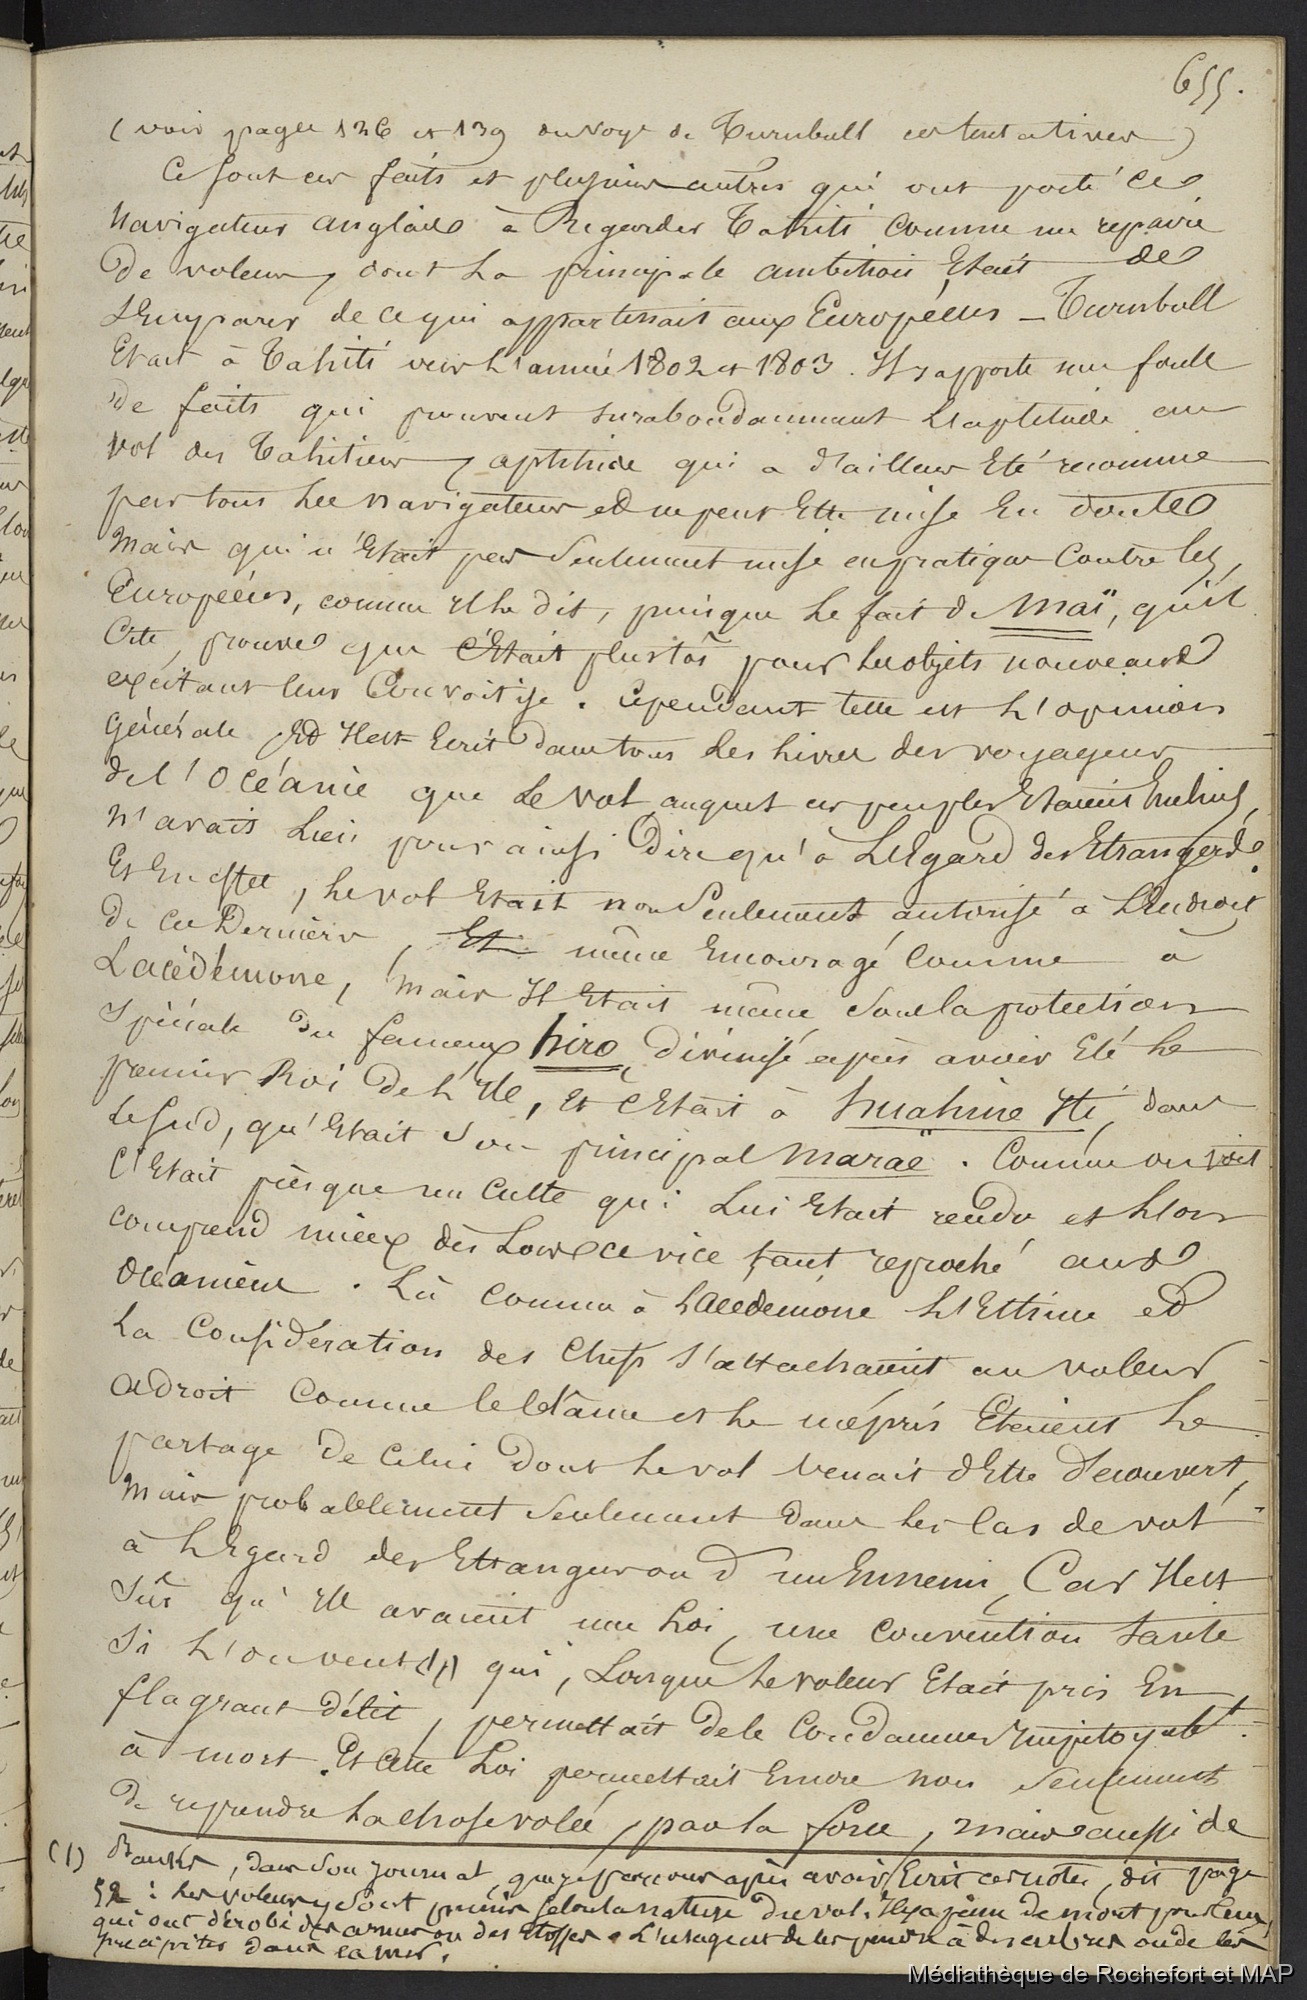 655.
(voir pages 126 et 139 du voyage de Turnbull ces tentatives)
Ce sont ces faits et plusieurs autres qui ont porté ces
navigateurs anglais à Regarder Tahiti comme un repaire
de voleurs, dont la principale ambition Etait de
s'Emparer de ce qui appartenait aux Européens – Turnbull
Etait à Tahiti vers l'année 1802 et 1803. Il rapporte une foule
de faits qui prouvent surabondamment l'aptitude au
vol des Tahitiens, aptitude qui a d'ailleurs Eté reconnue
par tous les navigateurs et ne peut Etre mise En doute
Mais qui n'Etait pas Seulement mise en pratique Contre les
Européens, comme il le dit, puisque le fait de Maï, qu'il
Cite, prouve que c'Etait plustôt pour les objets nouveaux
excitant leur Convoitise. Cependant telle est l'opinion
Générale Et il est Ecrit dans tous les livres des voyageurs
de l'Océanie que le vol auquel ces peuples Etaient Enclins,
n'avait Lieu pour ainsi Dire qu'à L'Egard des Etrangers.
Et En effet, le vol Etait non Seulement autorisé à L'Endroit
De ces Derniers, Et même Encouragé Comme à
Lacédémone, mais il Etait même Sous la protection
Spéciale du fameux hiro, divinisé après avoir Eté le
premier Roi De l'Ile, Et c'Etait à huahine iti, dans
le Sud, qu'Etait Son principal maraë. Comme on voit
C'Etait presque un Culte qui Lui Etait rendu et l'on
comprend mieux dès Lors ce vice tant reproché aux
Océaniens. Là comme à Lacedemone L'Estime et
la Considération des Chefs s'attachaient au voleur
adroit Comme le blâme et le mépris Etaient le
partage de Celui dont le vol venait d'Etre Découvert,
Mais probablement Seulement dans les Cas de vol
à l'Egard des Etrangers ou d'un Ennemi, Car il est
Sûr qu'ils avaient une Loi, une convention tacite
Si l'on veut (1) qui, Lorsque le voleur Etait pris En
flagrant délit, permettait de le Condamner impitoyablt.
à mort. Et cette Loi permettait Encore non Seulement
De reprendre la chose volée, par la force, mais aussi de
(1) Banks, dans Son Journal, que je parcours après avoir Ecrit ces notes, dit page
52 : les voleurs y Sont punis selon la nature du vol. Il y a peine de mort pour ceux
qui ont dérobé des armes ou des Etoffes. L'usage est de les pendre à des arbres ou de les
précipiter dans la mer.
Médiathèque de Rochefort et MAP